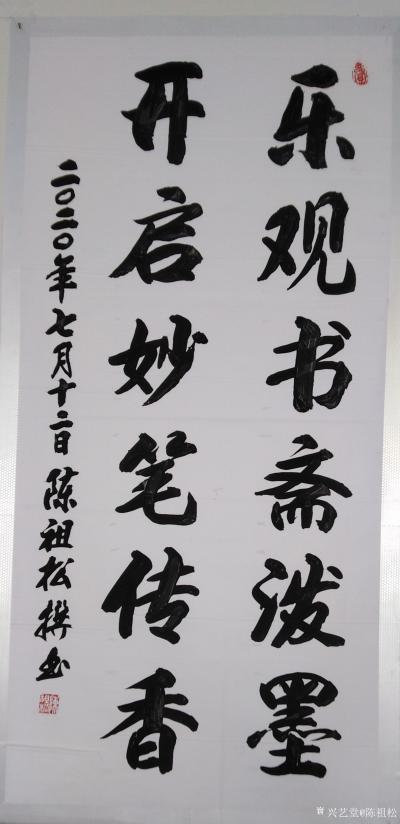 乐观书斋泼墨
开启妙笔传香
二〇二〇年七月十二日陈祖松撰书
兴艺堂@陈祖松